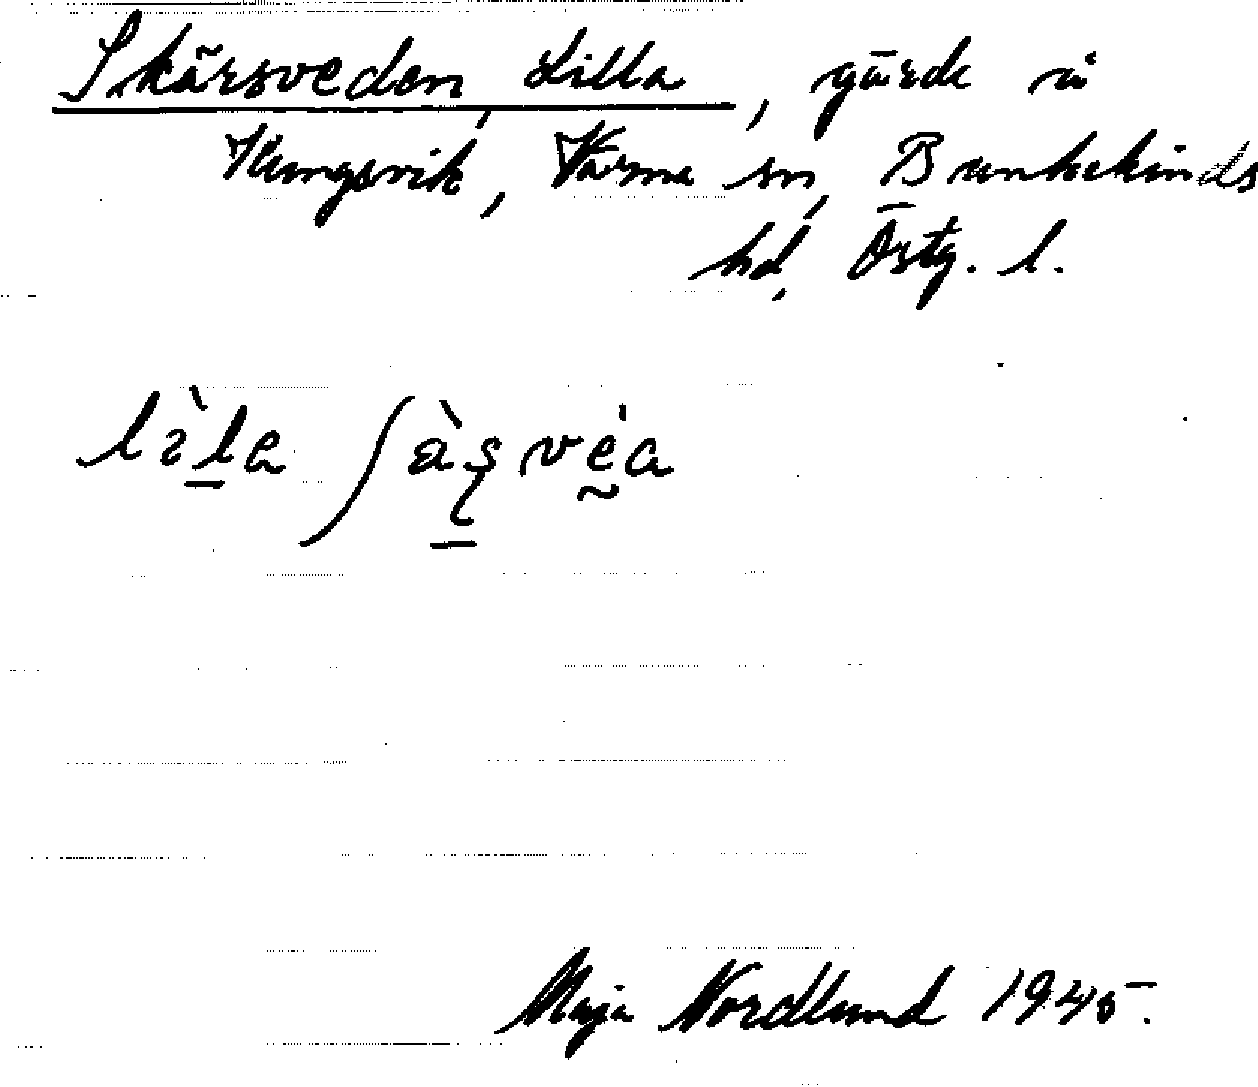 Skärsveden, Lilla, gärde å
Kungsvik, Värna sn, Bankekinds
hd, Östg. l.
lìla ʃàʂvèa
Maja Nordlund 1945.